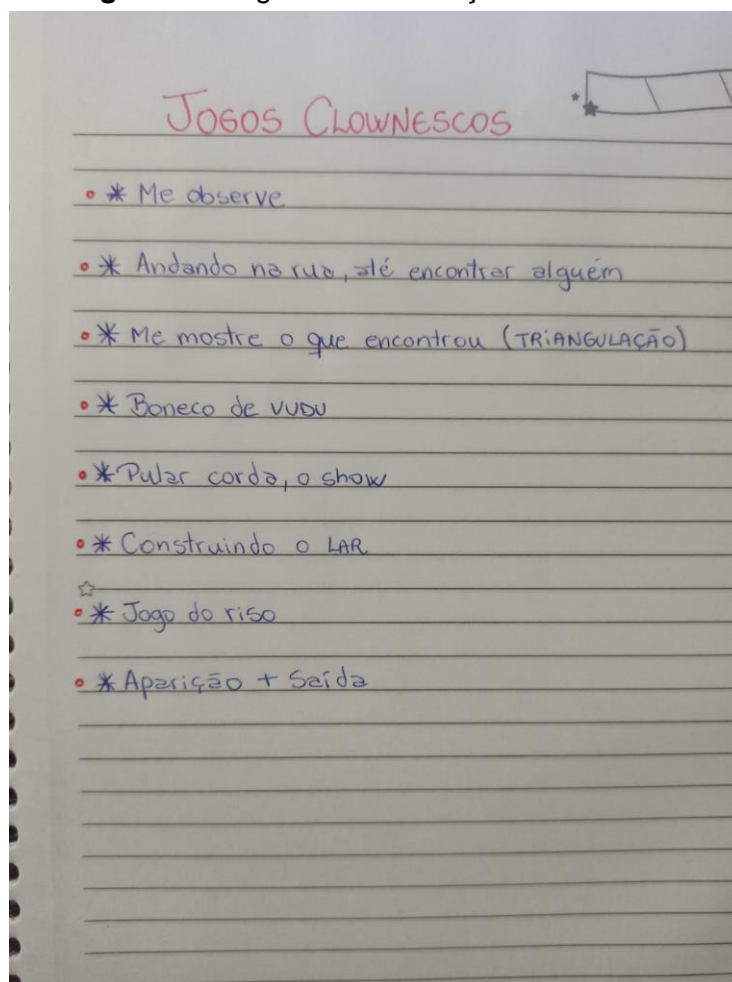 JOGOS CLOWNESCOS
• * Me observe
• * Andando na rua, até encontrar alguém
• * Me mostre o que encontrou (TRIANGULAÇÃO)
• * Boneco de VUDU
• * Pular corda, o show
• * Construindo o LAR
• * Jogo do riso
• * Aparição + Saída